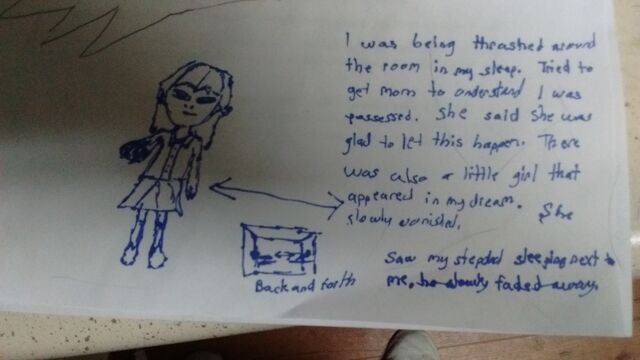 I was being thrashed around
the room in my sleep. Tried to
get mom to understand I was
possessed. She said she was
glad to let this happen. There
was also a little girl that
appeared in my dream. She
slowly vanished.
Saw my stepdad sleeping next to
me, he slowly faded away.
Back and forth